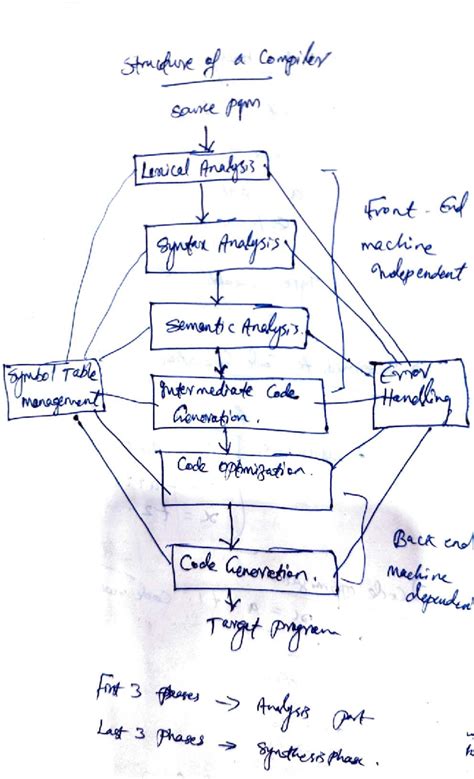 Structure of a Compiler
source pgm
Lexical Analysis
Front-End
machine
Independent
Syntax Analysis
Semantic Analysis
Symbol Table
management
Intermediate Code
Generation.
Error
Handling
Code optimization.
Back end
machine
dependent
Code Generation.
Target program
First 3 phases → Analysis part
Last 3 phases → Synthesis phase.